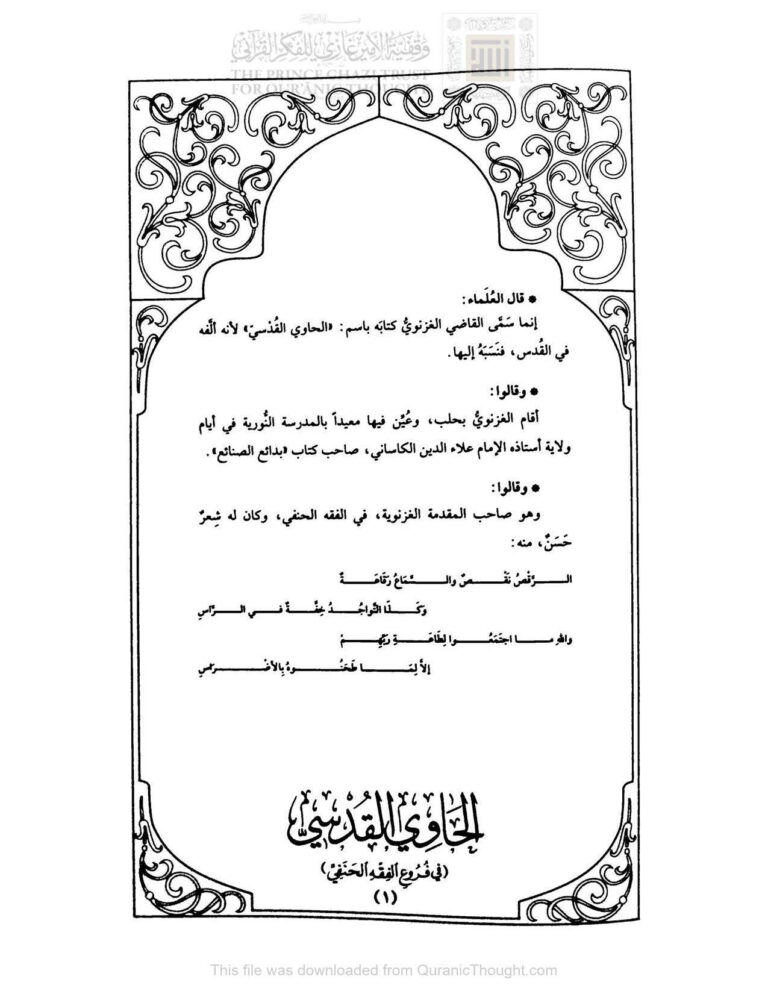 وقفية الأمير غازي للفكر القرآني
THE PRINCE GHAZI TRUST
FOR QUR'ANIC THOUGHT
* قال العُلَماء:
إنما سَمَّى القاضي الغزنويُّ كتابَه باسم: «الحاوي القُدْسيّ» لأنه ألَّفه
في القُدس، فنَسَبَهُ إليها.
* وقالوا:
أقام الغزنويُّ بحلب، وعُيِّن فيها معيداً بالمدرسة النُّورية في أيام
ولاية أستاذه الإمام علاء الدين الكاساني، صاحب كتاب «بدائع الصنائع».
* وقالوا:
وهو صاحب المقدمة الغزنوية، في الفقه الحنفي، وكان له شِعرٌ
حَسَنٌ، منه:
الـرَّقْصُ نَقْـصٌ والـسَّمَاعُ رَقَاعَـةٌ
وَكَـذَا التَّواجُـدُ خِفَّـةٌ فـي الـرَّاسِ
والله مـا اجتَمَعُـوا لِطَاعَـةِ رَبِّهِـمْ
إلاَّ لِمَـا طَحَنُـوهُ بِالأَضْـرَاسِ
الحَاوِي القُدْسِيّ
(في فُرُوعِ الفِقْهِ الحَنَفِيّ)
(١)
This file was downloaded from QuranicThought.com